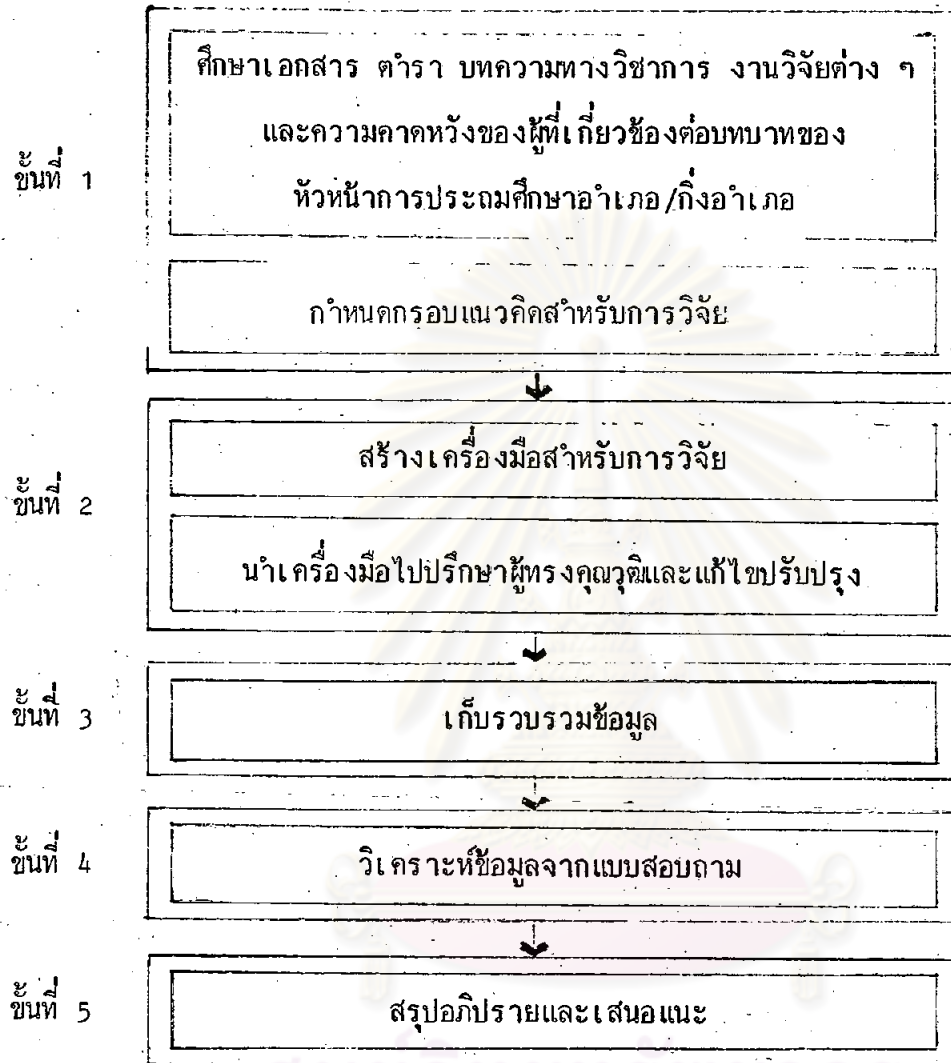 ขั้นที่ 1
ศึกษาเอกสาร ตำรา บทความทางวิชาการ งานวิจัยต่าง ๆ
และความคาดหวังของผู้ที่เกี่ยวข้องต่อบทบาทของ
หัวหน้าการประถมศึกษาอำเภอ/กิ่งอำเภอ
กำหนดกรอบแนวคิดสำหรับการวิจัย
ขั้นที่ 2
สร้างเครื่องมือสำหรับการวิจัย
นำเครื่องมือไปปรึกษาผู้ทรงคุณวุฒิและแก้ไขปรับปรุง
ขั้นที่ 3
เก็บรวบรวมข้อมูล
ขั้นที่ 4
วิเคราะห์ข้อมูลจากแบบสอบถาม
ขั้นที่ 5
สรุปอภิปรายและเสนอแนะ